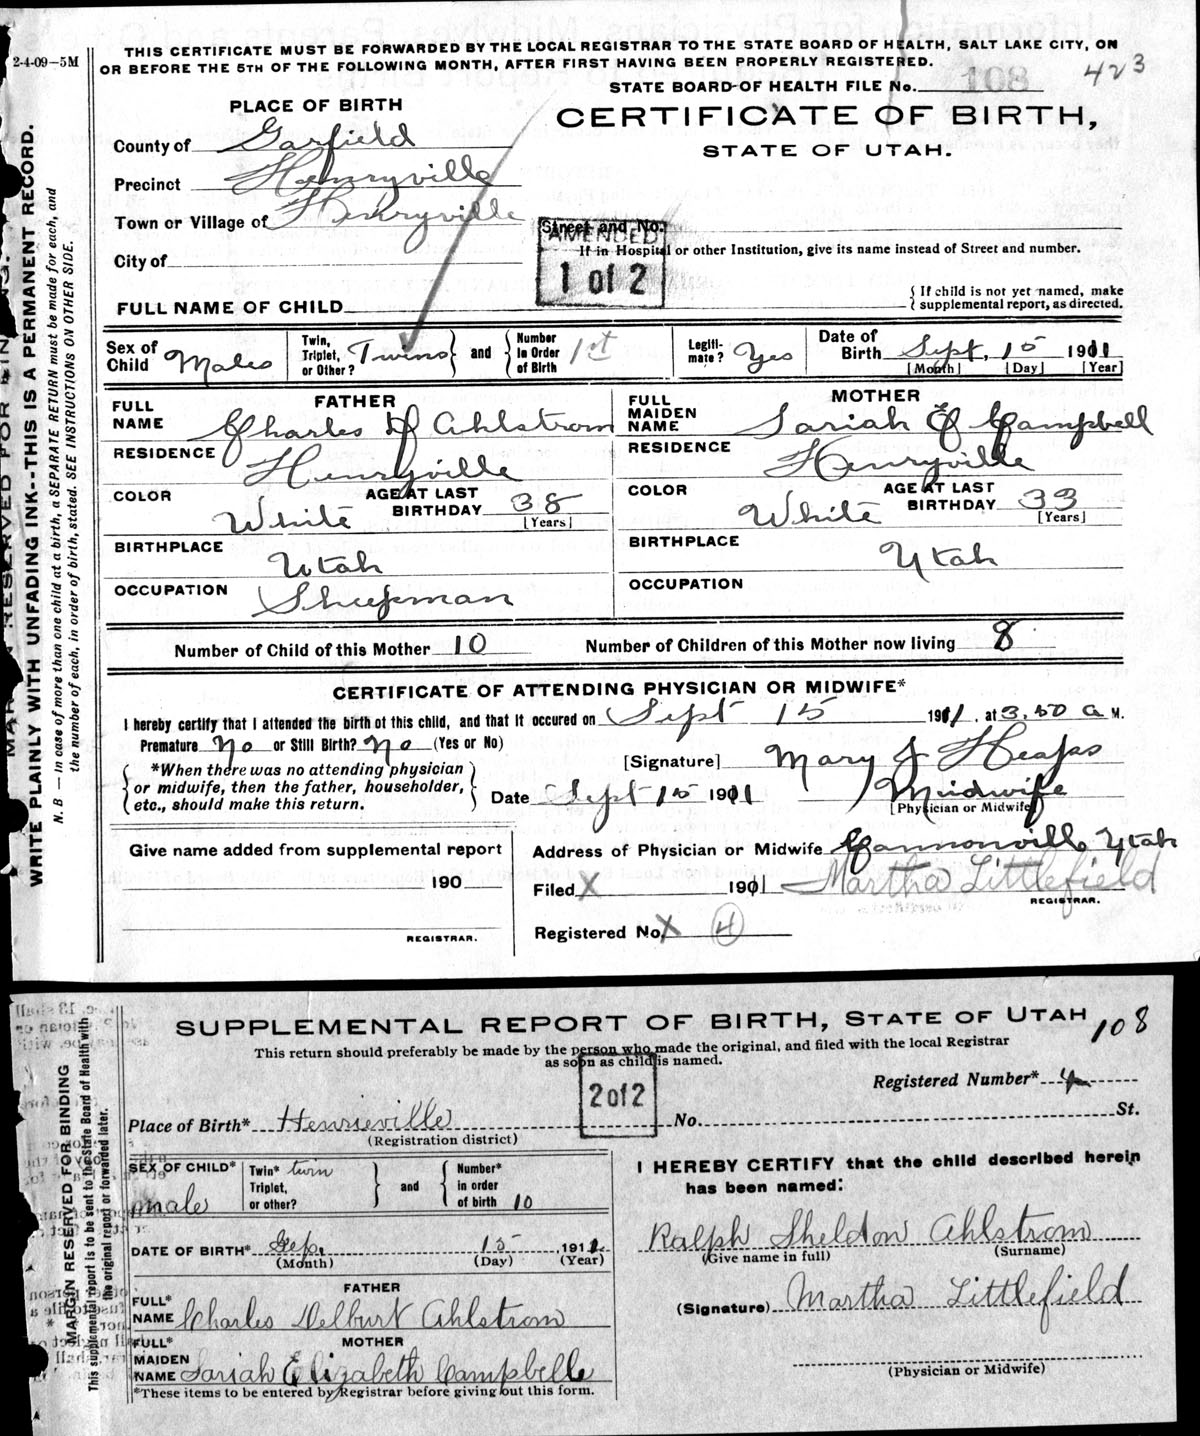 2-4-09—5M
THIS CERTIFICATE MUST BE FORWARDED BY THE LOCAL REGISTRAR TO THE STATE BOARD OF HEALTH, SALT LAKE CITY, ON
OR BEFORE THE 5TH OF THE FOLLOWING MONTH, AFTER FIRST HAVING BEEN PROPERLY REGISTERED.
STATE BOARD OF HEALTH FILE No. 108 423
PLACE OF BIRTH
CERTIFICATE OF BIRTH,
STATE OF UTAH.
County of Garfield
Precinct Henryville
Town or Village of Henryville
Street and No.
AMENDED
1 of 2
If in Hospital or other Institution, give its name instead of Street and number.
City of
FULL NAME OF CHILD
{ If child is not yet named, make
supplemental report, as directed.
Sex of Child Males
Twin, Triplet, or Other? Twins } and { Number in Order of Birth 1st
Legiti-mate? Yes
Date of Birth Sept, 15 1911
[Month] [Day] [Year]
FATHER
FULL NAME Charles D Ahlstrom
RESIDENCE Henryville
COLOR White
AGE AT LAST BIRTHDAY 38
[Years]
BIRTHPLACE Utah
OCCUPATION Sheepman
MOTHER
FULL MAIDEN NAME Sariah E Campbell
RESIDENCE Henryville
COLOR White
AGE AT LAST BIRTHDAY 33
[Years]
BIRTHPLACE Utah
OCCUPATION
Number of Child of this Mother 10 Number of Children of this Mother now living 8
CERTIFICATE OF ATTENDING PHYSICIAN OR MIDWIFE*
I hereby certify that I attended the birth of this child, and that it occured on Sept 15 1911, at 3,50 a M.
Premature No or Still Birth? No (Yes or No)
{ *When there was no attending physician
or midwife, then the father, householder,
etc., should make this return. }
[Signature] Mary J Heaps
Date Sept 15 1911 Midwife
[Physician or Midwife]
Give name added from supplemental report
190
REGISTRAR.
Address of Physician or Midwife Cannonville Utah
Filed X 1911 Martha Littlefield
REGISTRAR.
Registered No. X 4
WRITE PLAINLY WITH UNFADING INK--THIS IS A PERMANENT RECORD.
N. B — In case of more than one child at a birth, a SEPARATE RETURN must be made for each, and
the number of each, in order of birth, stated. SEE INSTRUCTIONS ON OTHER SIDE.
SUPPLEMENTAL REPORT OF BIRTH, STATE OF UTAH 108
This return should preferably be made by the person who made the original, and filed with the local Registrar
as soon as child is named.
2 of 2
Registered Number* 4
Place of Birth* Henrieville No. St.
(Registration district)
SEX OF CHILD* male
Twin* twin Triplet, or other? } and { Number* in order of birth 10
DATE OF BIRTH* Sep. 15 1911
(Month) (Day) (Year)
FATHER
FULL* NAME Charles Delburt Ahlstrom
MOTHER
FULL* MAIDEN NAME Sariah Elizabeth Campbelle
*These items to be entered by Registrar before giving out this form.
I HEREBY CERTIFY that the child described herein
has been named:
Ralph Sheldon Ahlstrom
(Give name in full) (Surname)
(Signature) Martha Littlefield
(Physician or Midwife)
MARGIN RESERVED FOR BINDING
This supplemental report is to be sent to the State Board of Health with
the original report or forwarded later.